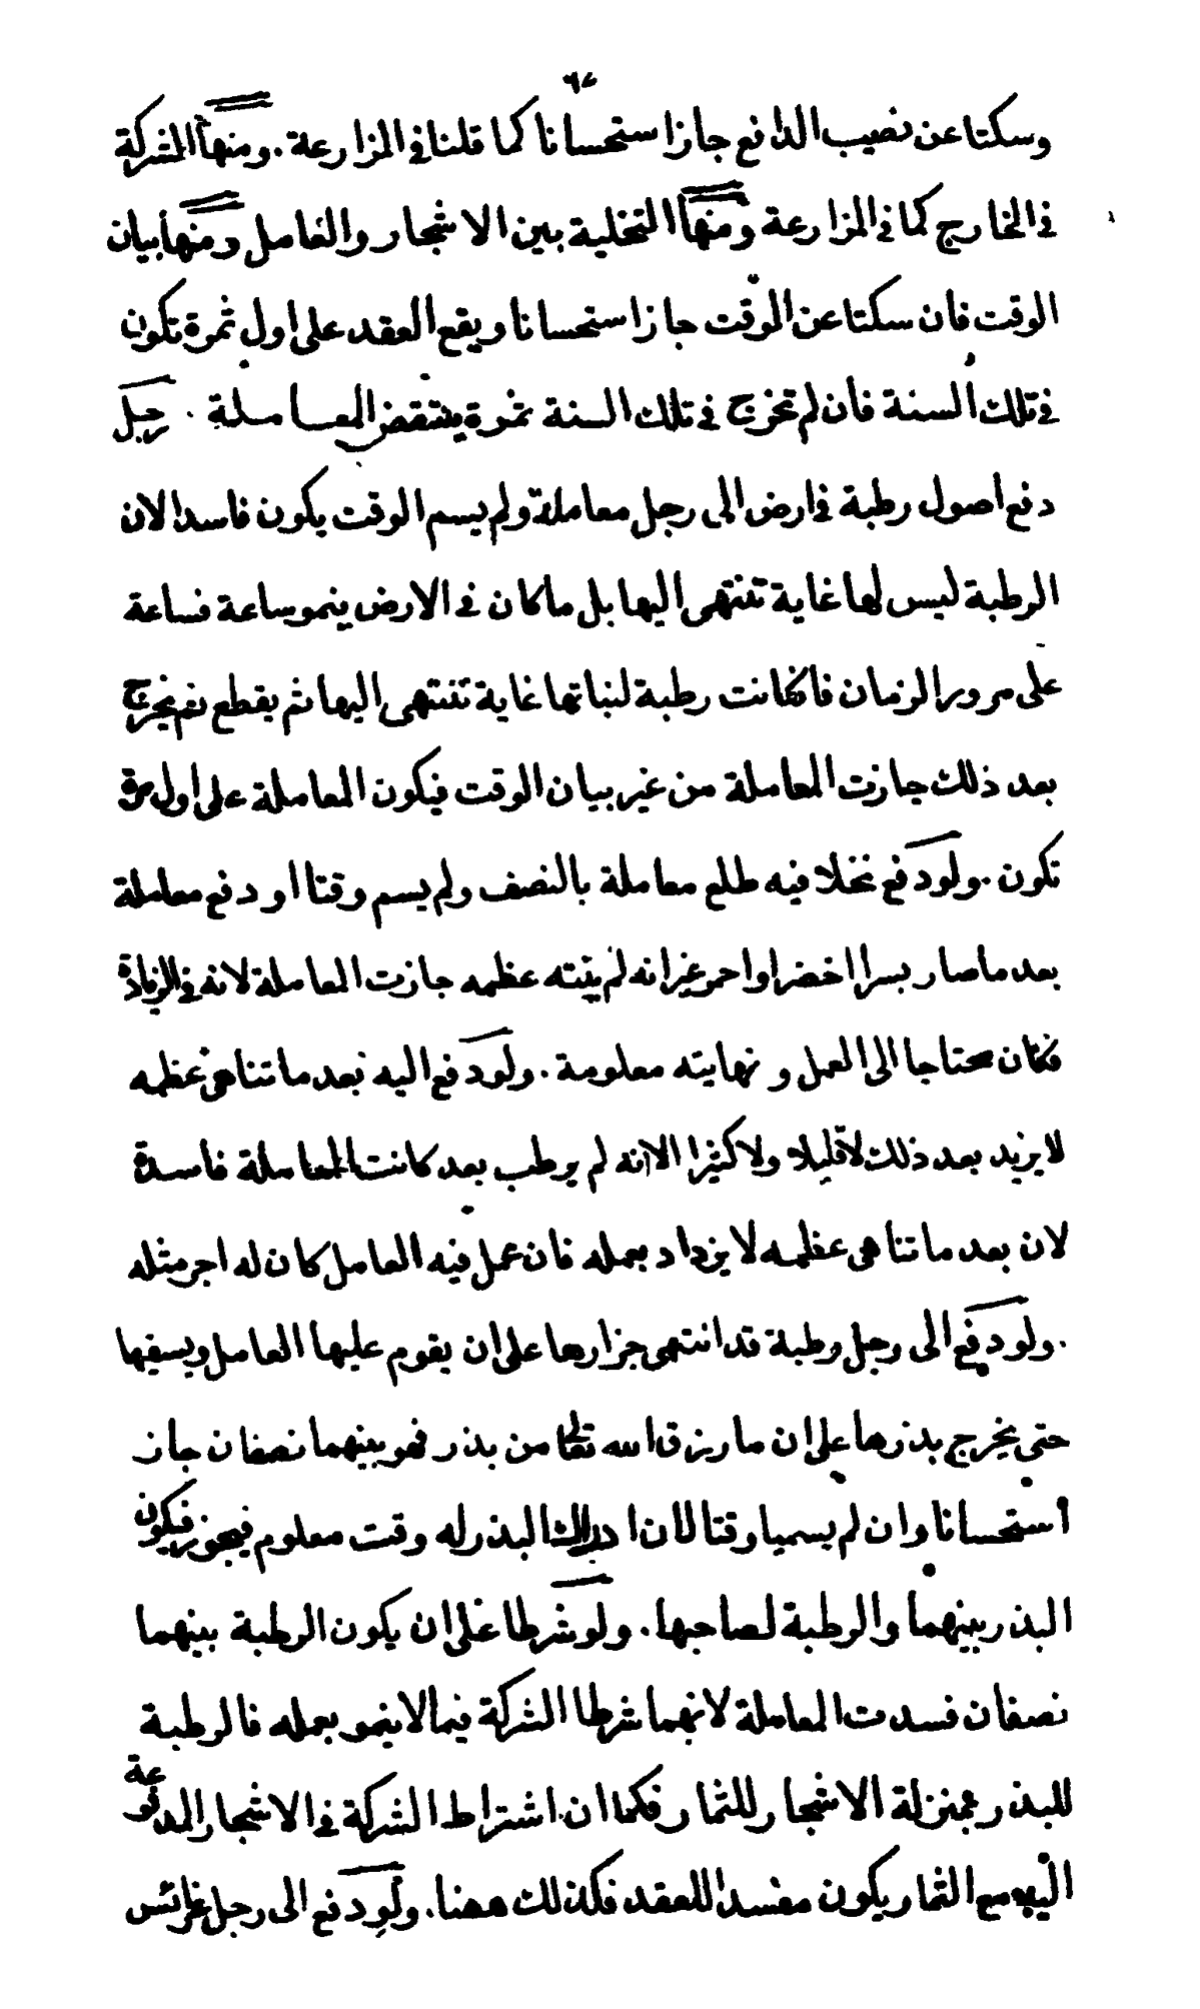 وسكتا عن نصيب الدافع جاز استحسانا كما قلنا فى المزارعة . ومنها الشركة
فى الخارج كما فى المزارعة ومنها التخلية بين الاشجار والعامل ومنها بيان
الوقت فان سكتا عن الوقت جاز استحسانا ويقع العقد على اول ثمرة تكون
فى تلك السنة فان لم تخرج فى تلك السنة ثمرة ينتقض المعاملة . رجل
دفع اصول رطبة فى ارض الى رجل معاملة ولم يسم الوقت يكون فاسدا لان
الرطبة ليس لها غاية تنتهى اليها بل ما كان فى الارض ينمو ساعة فساعة
على مرور الزمان فان كانت رطبة لنباتها غاية تنتهى اليها ثم يقطع ثم يخرج
بعد ذلك جازت المعاملة من غير بيان الوقت فيكون المعاملة على اول مرة
تكون . ولو دفع نخلا فيه طلع معاملة بالنصف ولم يسم وقتا او دفع معاملة
بعد ما صار بسرا اخضر او احمر غير انه لم ينته عظمه جازت المعاملة لانه فى الزيادة
فكان محتاجا الى العمل و نهايته معلومة . ولو دفع اليه بعد ما تناهى عظمه
لا يزيد بعد ذلك لا قليلا ولا كثيرا الا انه لم يرطب بعد كانت المعاملة فاسدة
لان بعد ما تناهى عظمه لا يزداد بعمله فان عمل فيه العامل كان له اجر مثله
. ولو دفع الى رجل رطبة قد انتهى جزارها على ان يقوم عليها العامل ويسقيها
حتى يخرج بذرها على ان ما رزق الله تعالى من بذر فهو بينهما نصفان جاز
استحسانا وان لم يسميا وقتا لان ادراك البذر له وقت معلوم فيجوز فيكون
البذر بينهما والرطبة لصاحبها . ولو شرطا على ان يكون الرطبة بينهما
نصفان فسدت المعاملة لانهما شرطا الشركة فيما لا ينمو بعمله فالرطبة
للبذر بمنزلة الاشجار للثمار فكما ان اشتراط الشركة فى الاشجار المدفوعة
اليه مع الثمار يكون مفسدا للعقد فكذلك ههنا . ولو دفع الى رجل غرائس